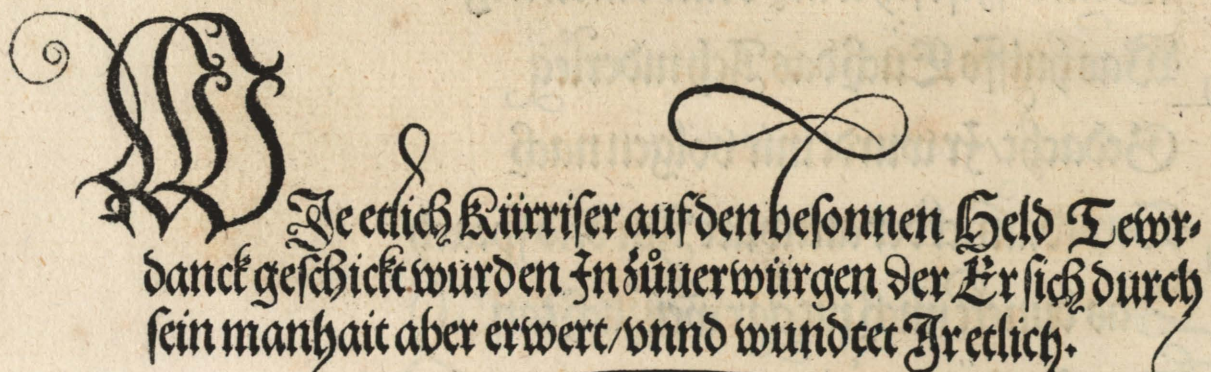 WJe etlich Kürriser auf den besonnen Held Tewr-
danck geschickt wurden Jn zůuerwürgen der Er sich durch
sein manhait aber erwert/ vnnd wundtet Jr etlich.